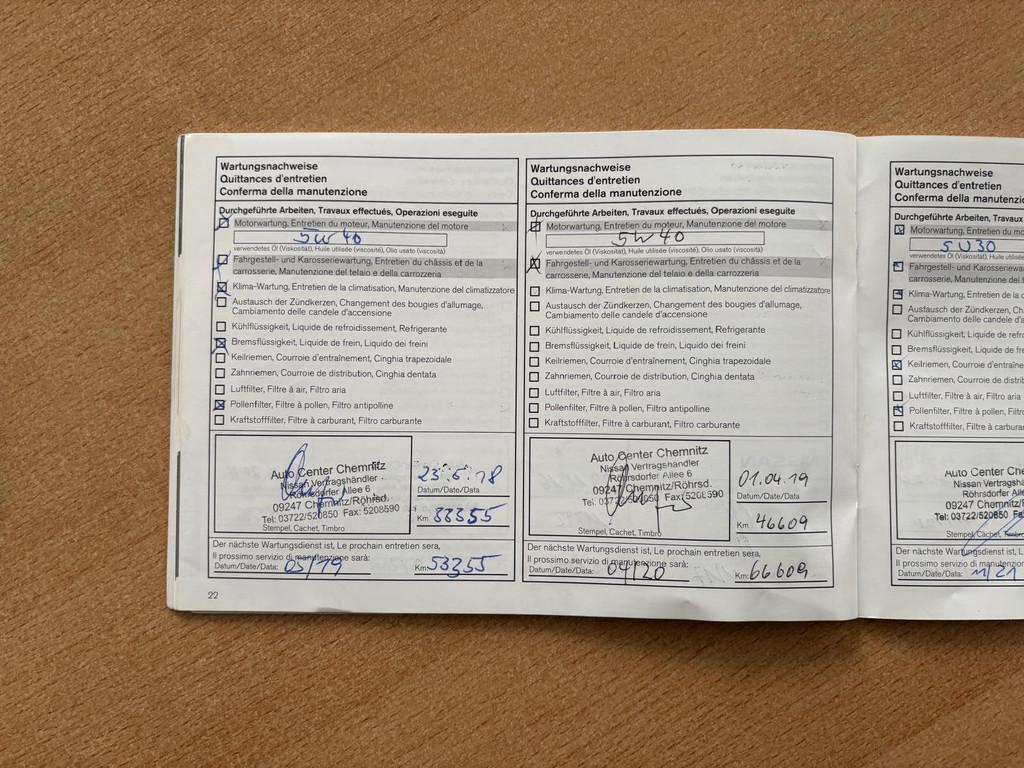 Wartungsnachweise
Quittances d'entretien
Conferma della manutenzione
Durchgeführte Arbeiten, Travaux effectués, Operazioni eseguite
Motorwartung, Entretien du moteur, Manutenzione del motore
5W40
verwendetes Öl (Viskosität), Huile utilisée (viscosité), Olio usato (viscosità)
Fahrgestell- und Karosseriewartung, Entretien du châssis et de la
carrosserie, Manutenzione del telaio e della carrozzeria
Klima-Wartung, Entretien de la climatisation, Manutenzione del climatizzatore
Austausch der Zündkerzen, Changement des bougies d'allumage,
Cambiamento delle candele d'accensione
Kühlflüssigkeit, Liquide de refroidissement, Refrigerante
Bremsflüssigkeit, Liquide de frein, Liquido dei freini
Keilriemen, Courroie d'entraînement, Cinghia trapezoidale
Zahnriemen, Courroie de distribution, Cinghia dentata
Luftfilter, Filtre à air, Filtro aria
Pollenfilter, Filtre à pollen, Filtro antipolline
Kraftstofffilter, Filtre à carburant, Filtro carburante
Auto Center Chemnitz
Nissan Vertragshändler
Röhrsdorfer Allee 6
09247 Chemnitz/Röhrsd.
Tel: 03722/520850 Fax: 5208590
Stempel, Cachet, Timbro
23.5.18
Datum/Date/Data
Km 33355
Der nächste Wartungsdienst ist, Le prochain entretien sera,
Il prossimo servizio di manutenzione sarà:
Datum/Date/Data: 05/19 Km: 53355
22
Wartungsnachweise
Quittances d'entretien
Conferma della manutenzione
Durchgeführte Arbeiten, Travaux effectués, Operazioni eseguite
Motorwartung, Entretien du moteur, Manutenzione del motore
5W40
verwendetes Öl (Viskosität), Huile utilisée (viscosité), Olio usato (viscosità)
Fahrgestell- und Karosseriewartung, Entretien du châssis et de la
carrosserie, Manutenzione del telaio e della carrozzeria
Klima-Wartung, Entretien de la climatisation, Manutenzione del climatizzatore
Austausch der Zündkerzen, Changement des bougies d'allumage,
Cambiamento delle candele d'accensione
Kühlflüssigkeit, Liquide de refroidissement, Refrigerante
Bremsflüssigkeit, Liquide de frein, Liquido dei freini
Keilriemen, Courroie d'entraînement, Cinghia trapezoidale
Zahnriemen, Courroie de distribution, Cinghia dentata
Luftfilter, Filtre à air, Filtro aria
Pollenfilter, Filtre à pollen, Filtro antipolline
Kraftstofffilter, Filtre à carburant, Filtro carburante
Auto Center Chemnitz
Nissan Vertragshändler
Röhrsdorfer Allee 6
09247 Chemnitz/Röhrsd.
Tel: 03722/520850 Fax: 5208590
Stempel, Cachet, Timbro
01.04.19
Datum/Date/Data
Km 46609
Der nächste Wartungsdienst ist, Le prochain entretien sera,
Il prossimo servizio di manutenzione sarà:
Datum/Date/Data: 04/20 Km: 66609
Wartungsnachweise
Quittances d'entretien
Conferma della manutenz
Durchgeführte Arbeiten, Travaux
Motorwartung, Entretien du mo
5W30
verwendetes Öl (Viskosität), Huile utilisé
Fahrgestell- und Karosseriewa
carrosserie, Manutenzione del
Klima-Wartung, Entretien de la c
Austausch der Zündkerzen, Ch
Cambiamento delle candele d'a
Kühlflüssigkeit, Liquide de refr
Bremsflüssigkeit, Liquide de fre
Keilriemen, Courroie d'entraîne
Zahnriemen, Courroie de distrib
Luftfilter, Filtre à air, Filtro aria
Pollenfilter, Filtre à pollen, Filtro
Kraftstofffilter, Filtre à carburan
Auto Center Che
Nissan Vertragshänd
Röhrsdorfer Allee
09247 Chemnitz/
Tel: 03722/520850 Fa
Stempel, Cachet, Timbro
Der nächste Wartungsdienst ist, L
Il prossimo servizio di manutenzion
Datum/Date/Data: 11/21